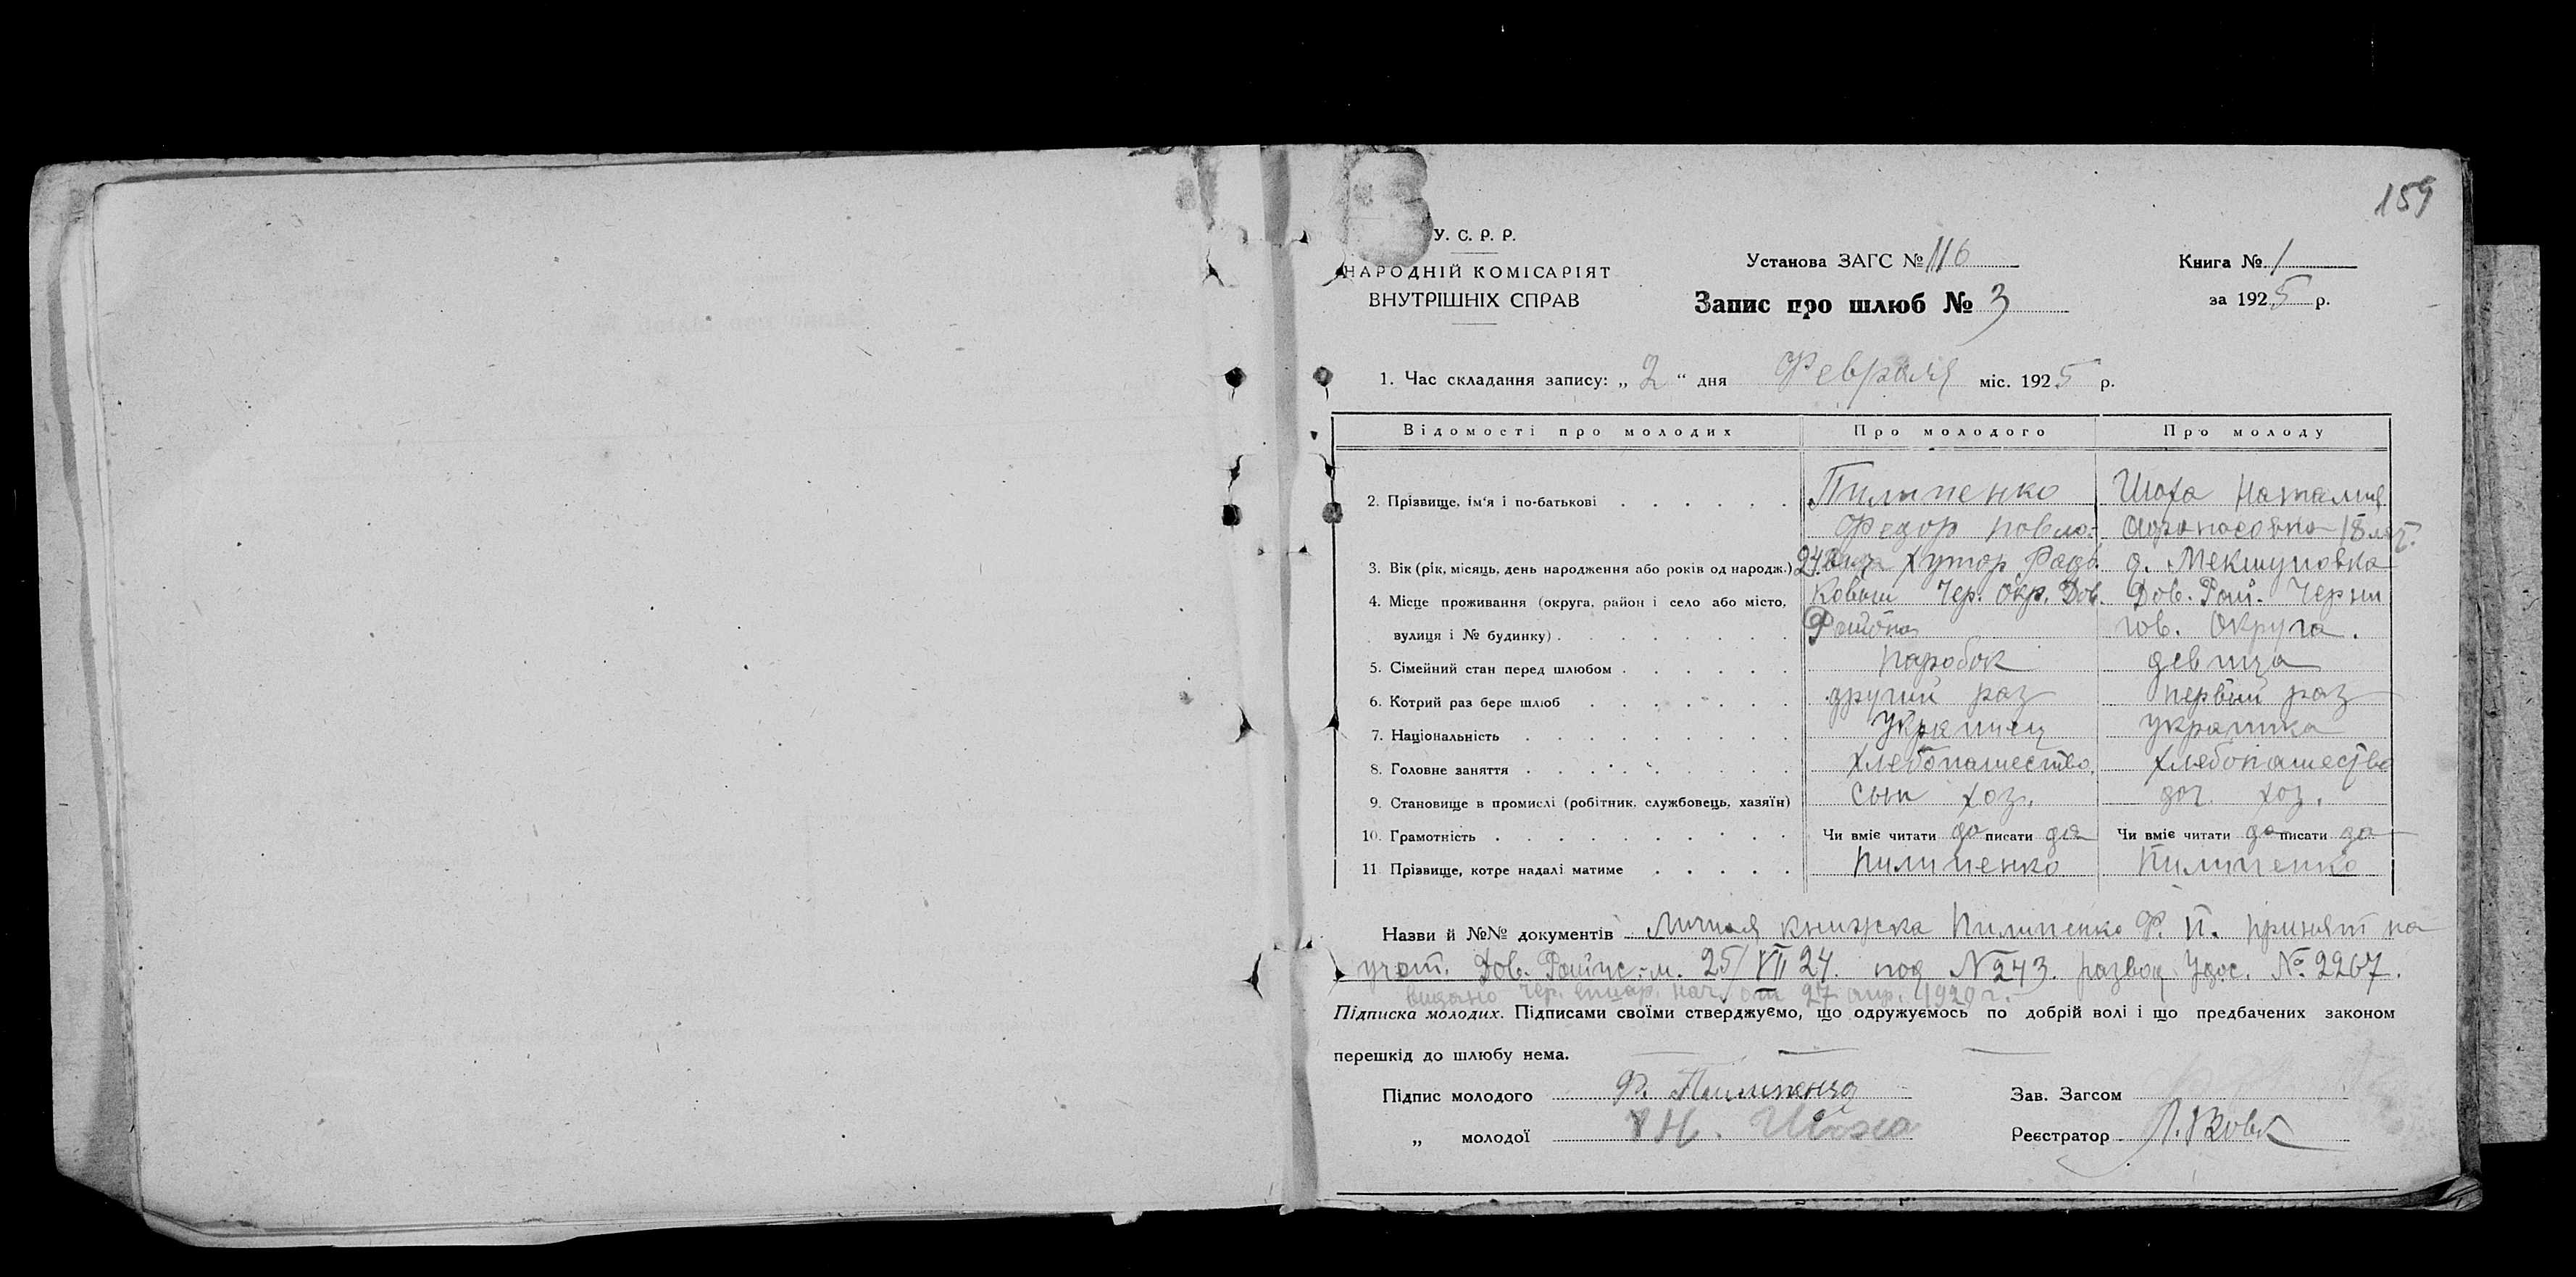 159
У. С. Р. Р.
НАРОДНІЙ КОМІСАРІЯТ
ВНУТРІШНІХ СПРАВ
Установа ЗАГС № 116
Запис про шлюб № 3
Книга № 1
за 1925 р.
1. Час складання запису: „ 2 “ дня Февраля міс. 1925 р.
Відомості про молодих Про молодого Про молоду
2. Прізвище, ім'я і по-батькові Пилипенко Шоха Наталия
Федор Павло. Афанасовна 18 лят.
3. Вік (рік, місяць, день народження або років од народж.) 24 хутор д.
4. Місце проживання (округа, район і село або місто, Чер. Окр. Дов. Дов. Рай. Черни
вулиця і № будинку) Района гов. Округа.
5. Сімейний стан перед шлюбом паробок девица
6. Котрий раз бере шлюб другий раз первый раз
7. Національність Украинец украинка
8. Головне заняття хлебопашество хлебопашество
9. Становище в промислі (робітник, службовець, хазяїн) сын хоз. доч. хоз.
10. Грамотність Чи вміє читати да писати да Чи вміє читати да писати да
11 Прізвище, котре надалі матиме Пилипенко Пилипенко
Назви й №№ документів Личная книжка Пилипенко Ф. П. принят на
учот. Дов. 25/VII 24. под №243. развод Удос. №2267.
видано Чер. от 27 апр. 1920 г.
Підписка молодих. Підписами своїми стверджуємо, що одружуємось по добрій волі і що предбачених законом
перешкід до шлюбу нема.
Підпис молодого Ф. Пилипенко Зав. Загсом
„ молодої Н. Шоха Реєстратор